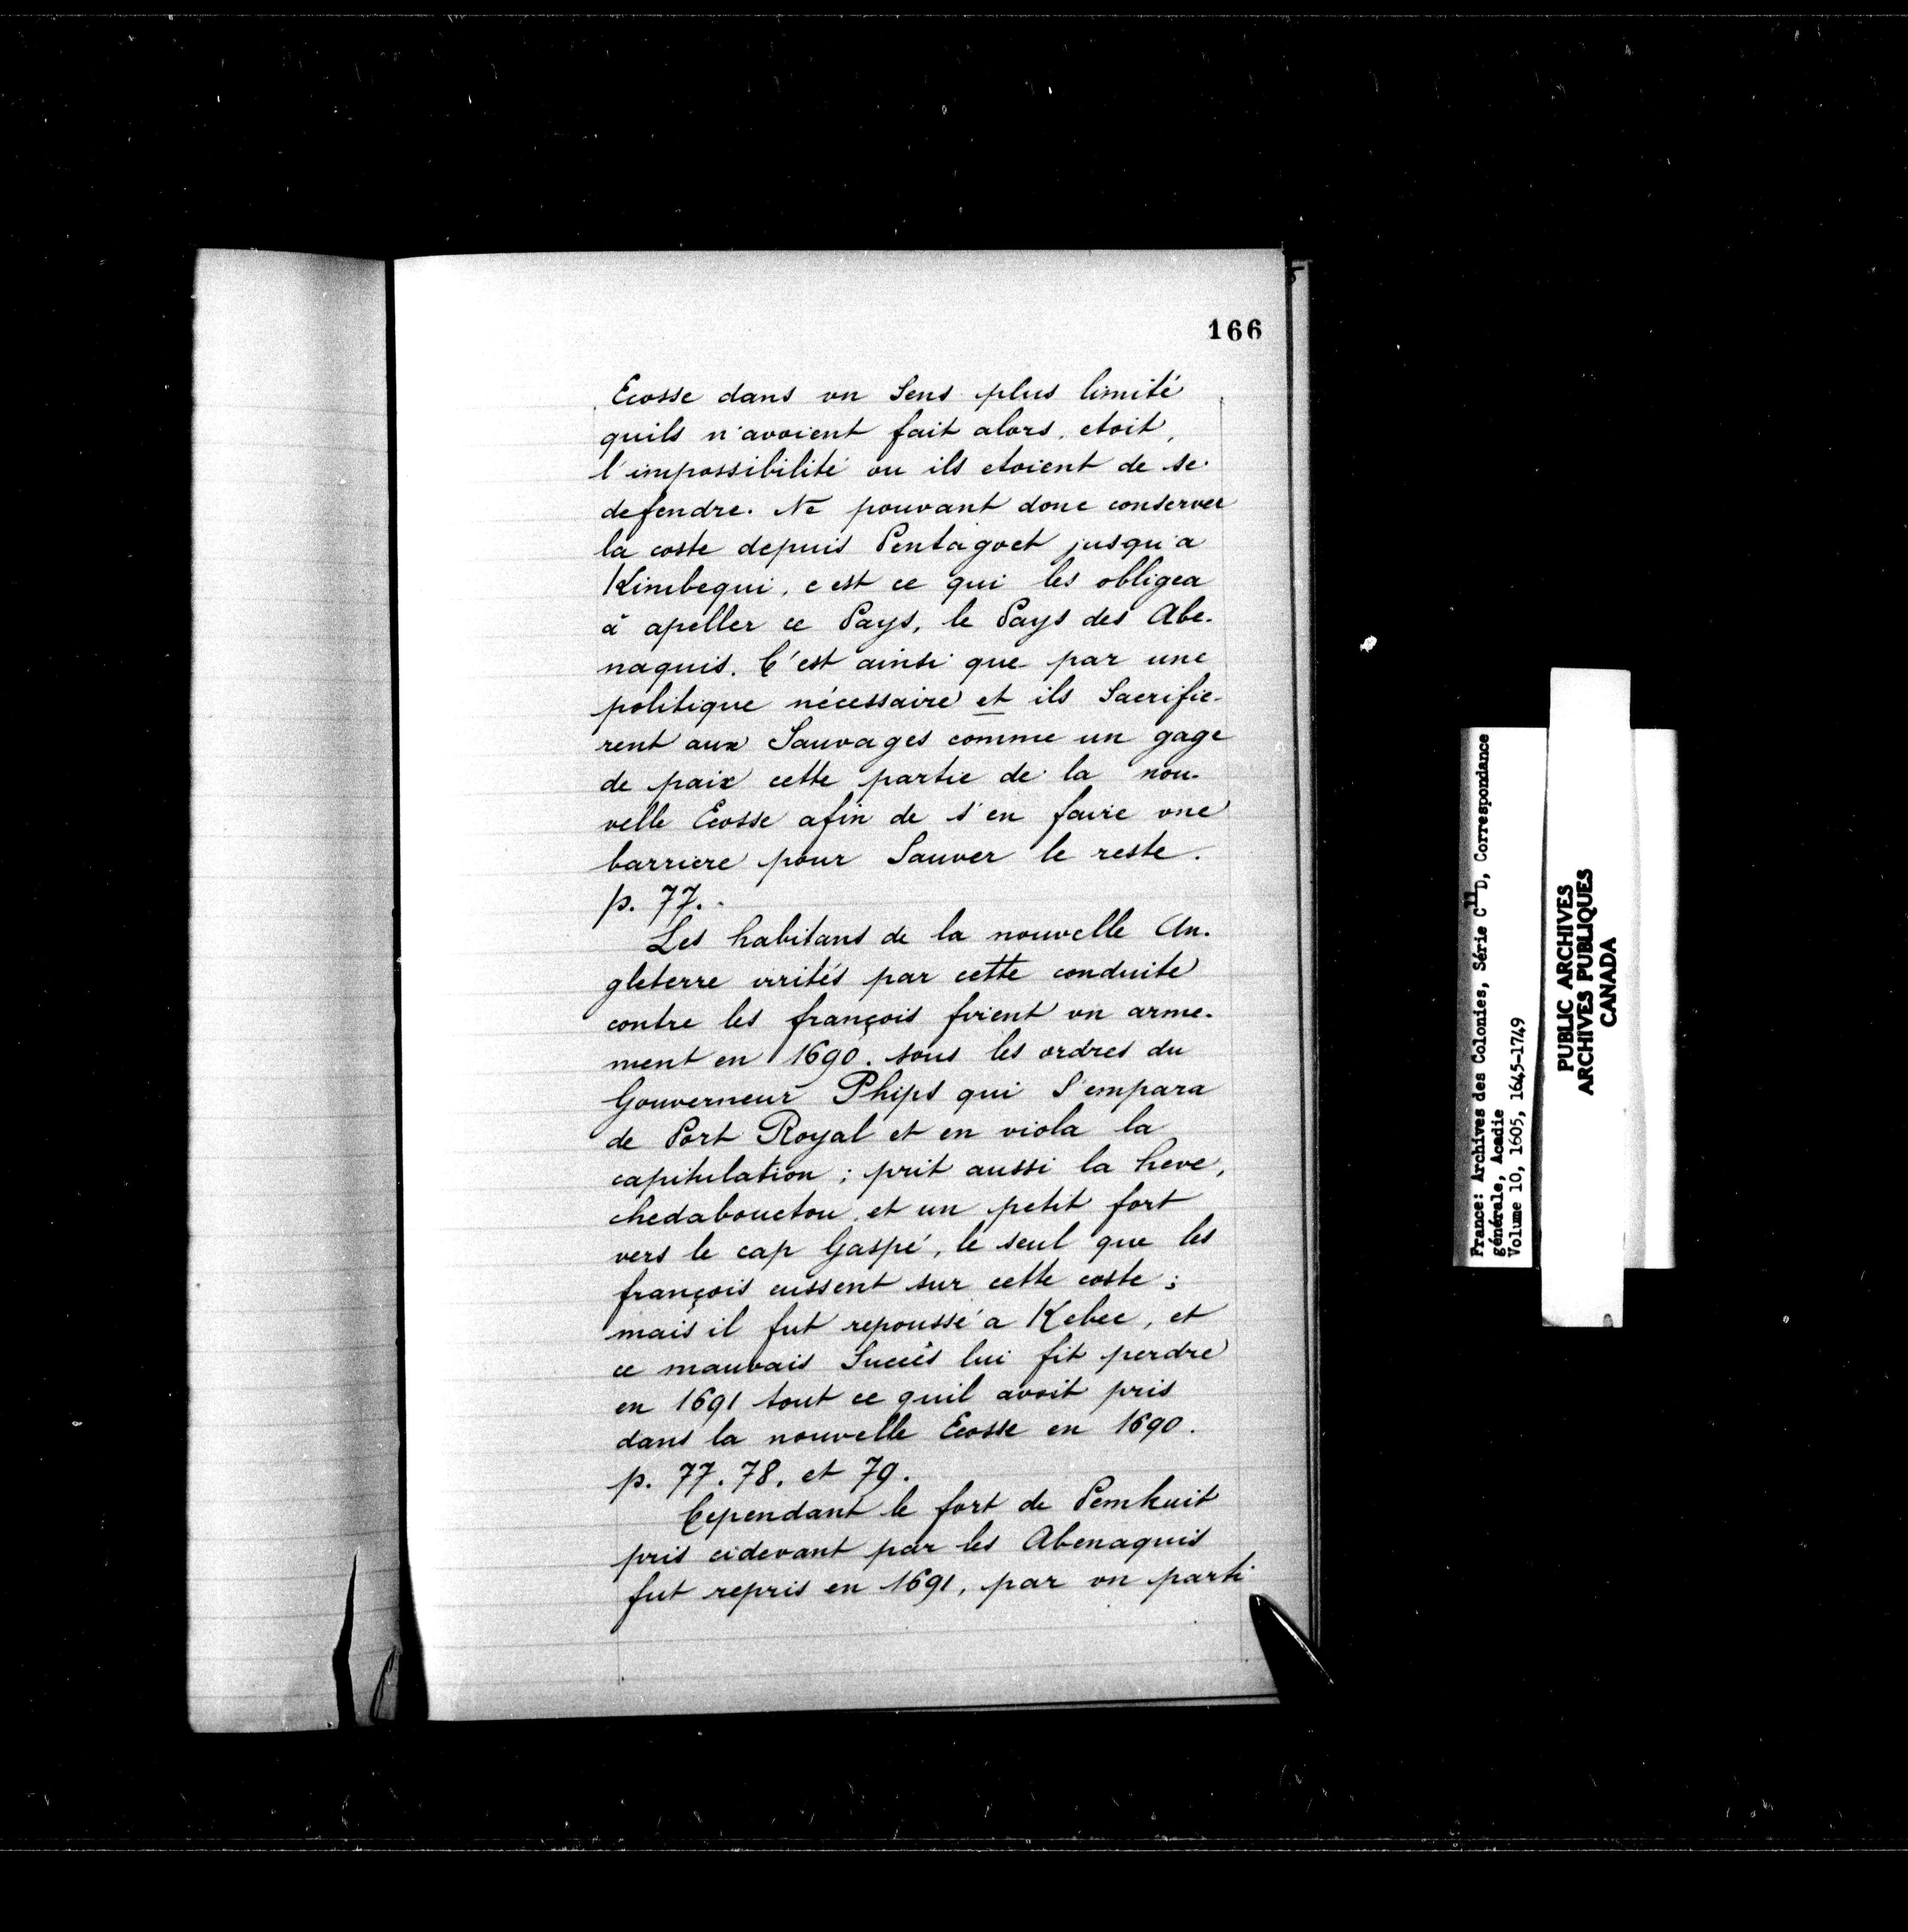 166
Ecosse dans vn Sens plus limité
quils n'avoient fait alors, etoit,
l'impossibilité ou ils etoient de se
defendre. Ne pouvant donc conserver
la coste depuis Pentagoet jusqu'a
Kimbequi, c'est ce qui les obligea
à apeller ce Pays, le Pays des Abe-
naquis. C'est ainsi que par une
politique nécessaire et ils Sacrifie-
rent aux Sauvages comme un gage
de paix cette partie de la nou-
velle Ecosse afin de s'en faire vne
barriere pour Sauver le reste.
p. 77.
Les habitans de la nouvelle An-
gleterre irrités par cette conduite
contre les françois firent vn arme-
ment en 1690. sous les ordres du
Gouverneur Phips qui S'empara
de Port Royal et en viola la
capitulation; prit aussi la heve,
chedabouctou, et un petit fort
vers le cap Gaspé, le seul que les
françois eussent sur cette coste;
mais il fut repoussé a Kebec, et
ce mauvais Succès lui fit perdre
en 1691 tout ce quil avoit pris
dans la nouvelle Ecosse en 1690.
p. 77. 78. et 79.
Cependant le fort de Pemkuit
pris cidevant par les Abenaquis
fut repris en 1691, par vn parti
France: Archives des Colonies, Série C11D, Correspondance
générale, Acadie
Volume 10, 1605, 1645-1749
PUBLIC ARCHIVES
ARCHIVES PUBLIQUES
CANADA